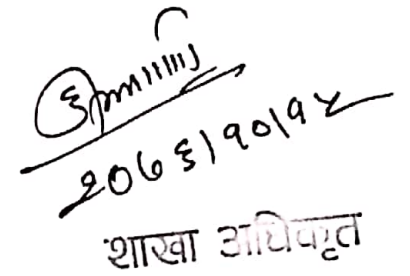 २०७६।१०।१५
शाखा अधिकृत